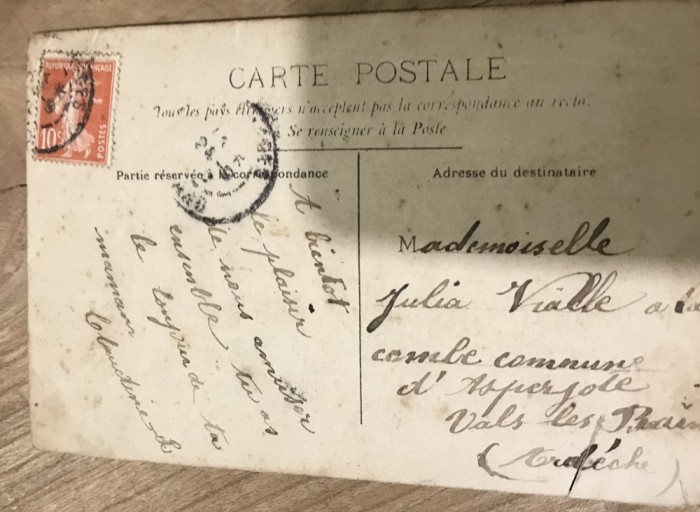 RÉPUBLIQUE FRANÇAISE
10c
POSTES
CARTE POSTALE
Tous les pays étrangers n'acceptent pas la correspondance au recto.
Se renseigner à la Poste
Partie réservée à la correspondance
A bientot
le plaisir
de nous amuser
ensemble tu as
le bonjour de ta
maman
Claudine
Adresse du destinataire
Mademoiselle
Julia Vialle a la
combe commune
d'Asperjote
Vals les Bain
(Ardéche)